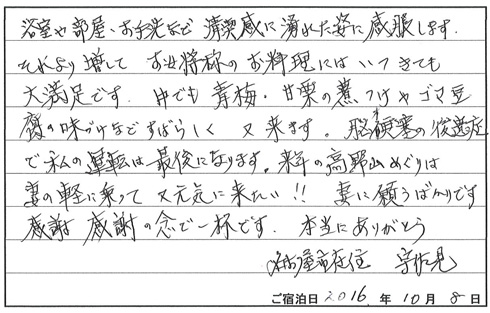 浴室や部屋、お手洗など清潔感に溢れた姿に感服します。
それより増して お女将様のお料理にはいつきても
大満足です。中でも 青梅・甘栗の煮つけやゴマ豆
腐の味づけなどすばらしく 又来ます。脳梗塞の後遺症
で私の運転は最後になります。来年の高野山めぐりは
妻の軽に乗って 又元気に来たい!! 妻に願うばかりです
感謝 感謝の念で一杯です。本当にありがとう
市在住 宇佐見
ご宿泊日 2016. 年 10 月 8 日